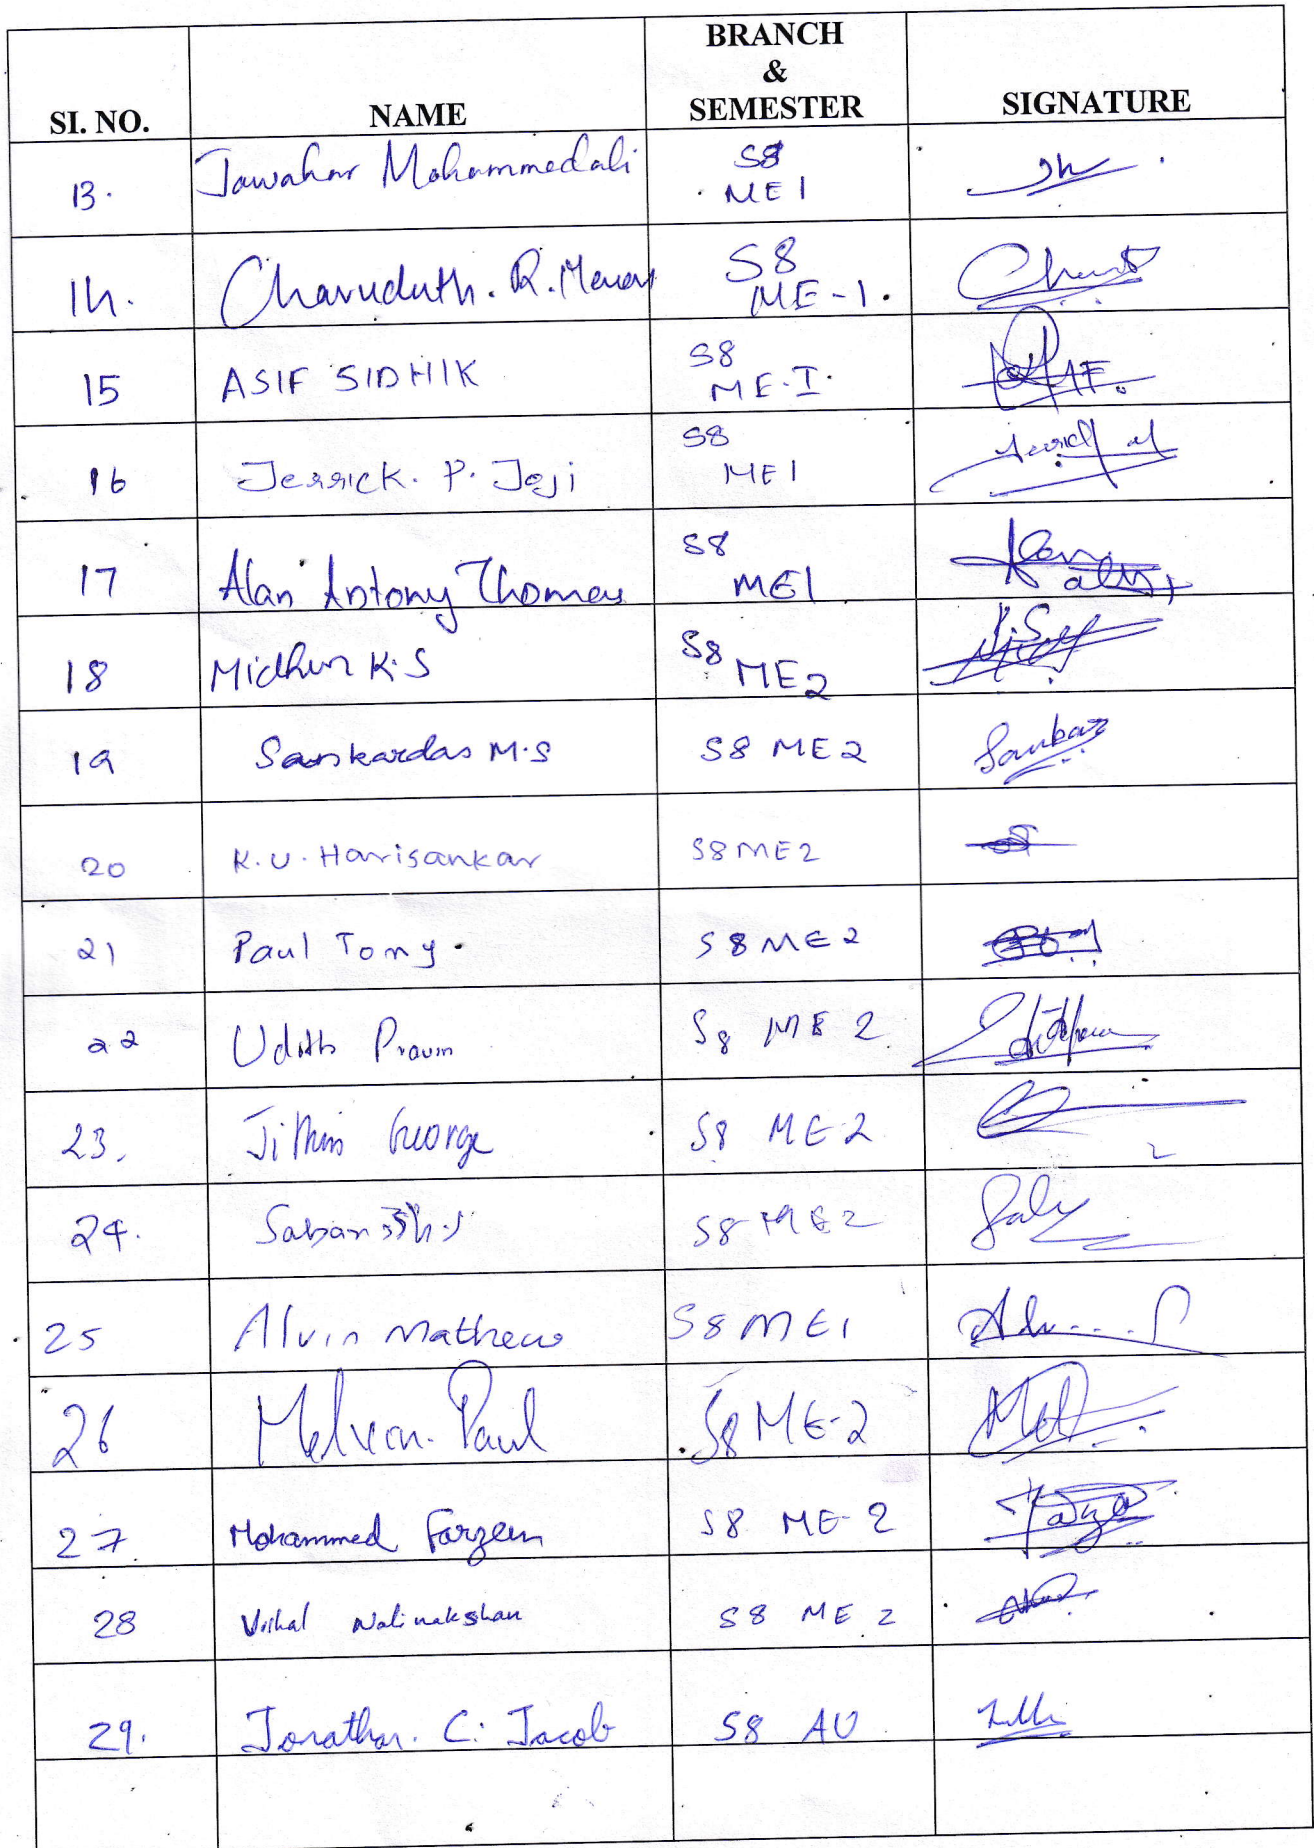 SI. NO. NAME BRANCH & SEMESTER SIGNATURE
13. Jawahar Mohammedali S8 ME1
14. Charuduth. R. Menon S8 ME-1.
15 ASIF SIDHIK S8 ME-I.
16 Jerrick. P. Joji S8 ME1
17 Alan Antony Thomas S8 ME1
18 Midhun K.S S8 ME2
19 Sankardas M.S S8 ME2 Sankar
20 K.U. Harisankar S8 ME2
21 Paul Tomy. S8 ME2
22 Udith Pravin S8 ME 2
23. Jithin George S8 ME-2
24. S8 ME2
25 Alvin Mathew S8 ME1
26 Paul S8 ME-2
27. Mohammed Farzeen S8 ME-2
28 Vishal Nalinakshan S8 ME 2
29. Jonathan. C. Jacob S8 AU